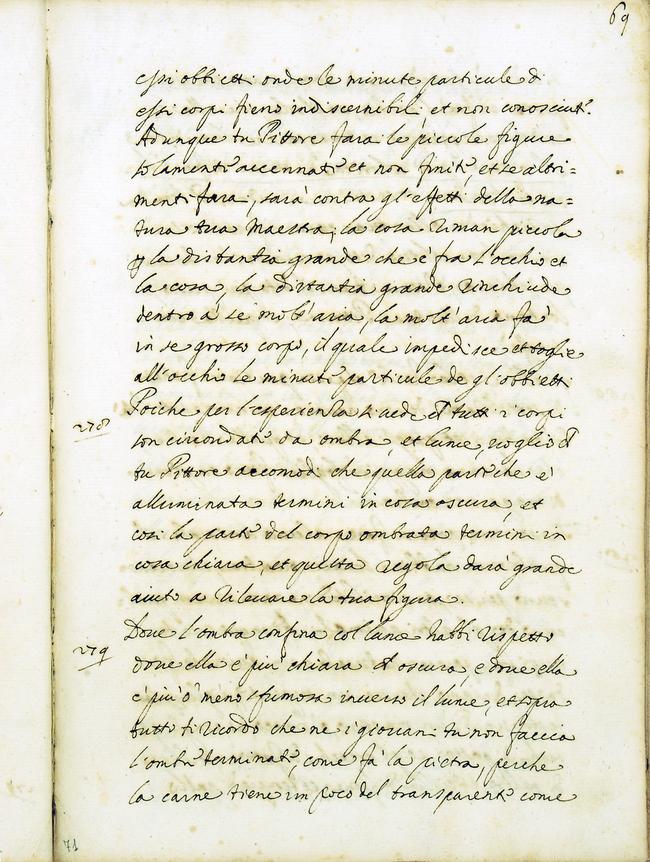 69
essi obbietti onde le minute particule di
essi corpi fieno indiscernibili et non conosciuti.
Adunque tu Pittore farai le piccole figure
solamente accennate et non finite, et se altri=
menti farai, sarà contra gl'effetti della na=
tura tua Maestra; la cosa riman piccola
p la distantia grande che è fra l'occhio et
la cosa, la distantia grande rinchiude
dentro à se molt'aria, la molt'aria fà
in se grosso corpo, il quale impedisce et toglie
all'occhio le minute particule de gl'obbietti
278 Poiche per l'esperienza si uede ch tutti i corpi
son circondati da ombra, et lume, uoglio ch
tu Pittore accomodi che quella parte che è
alluminata termini in cosa oscura, et
cosi la parte del corpo ombrata termini in
cosa chiara, et questa regola darà grande
aiuto a rileuare la tua figura.
279 Doue l'ombra confina col lume habbi rispetto
doue ella è più chiara ch oscura, e doue ella
è più ò meno sfumosa inuerso il lume, et sopra
tutto ti ricordo che ne i giouani tu non faccia
l'ombre terminate, come fà la pietra, perche
la carne tiene un poco del transparente come
71